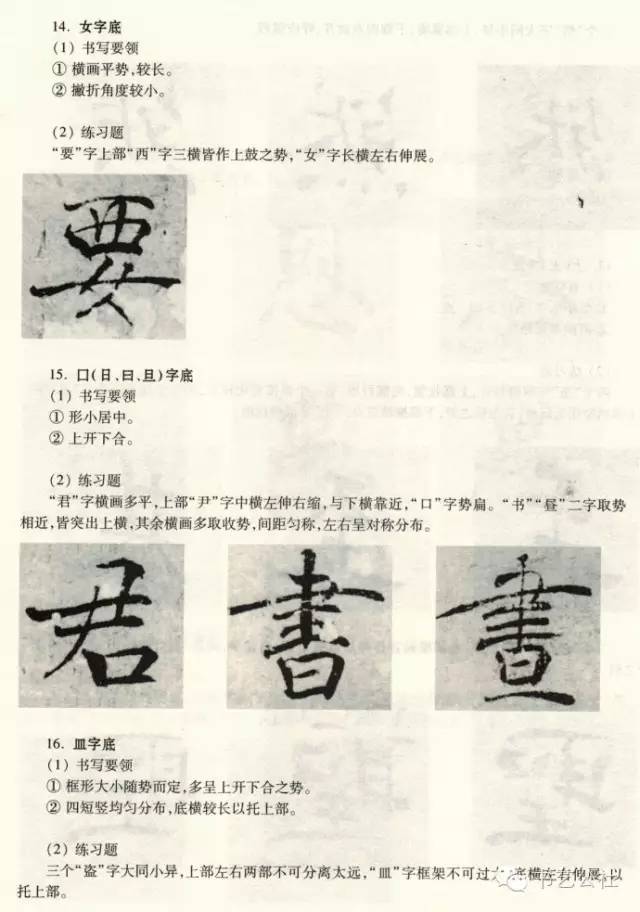 14. 女字底
(1) 书写要领
① 横画平势,较长。
② 撇折角度较小。
(2) 练习题
“要”字上部“西”字三横皆作上鼓之势,“女”字长横左右伸展。
要
15. 口(日、曰、旦)字底
(1) 书写要领
① 形小居中。
② 上开下合。
(2) 练习题
“君”字横画多平,上部“尹”字中横左伸右缩,与下横靠近,“口”字势扁。“书”“昼”二字取势
相近,皆突出上横,其余横画多取收势,间距匀称,左右呈对称分布。
君 書 晝
16. 皿字底
(1) 书写要领
① 框形大小随势而定,多呈上开下合之势。
② 四短竖均匀分布,底横较长以托上部。
(2) 练习题
三个“盗”字大同小异,上部左右两部不可分离太远,“皿”字框架不可过大,底横左右伸展,以
托上部。
书艺公社